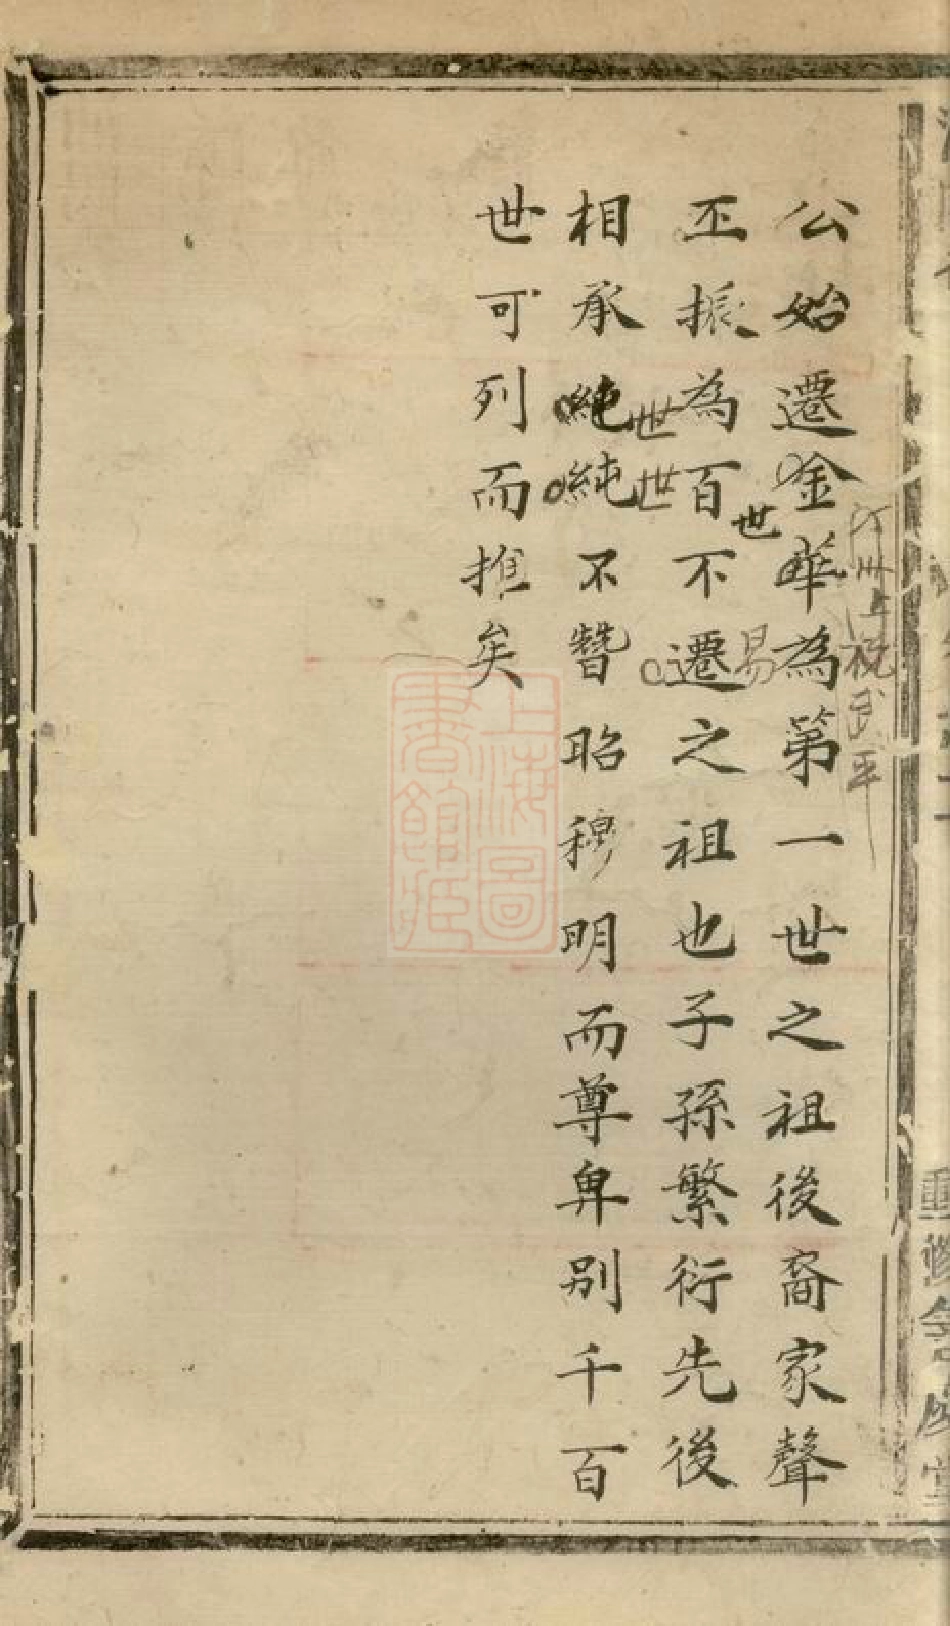 公始遷金華為第一世之祖後裔家聲
汀州上杭武平
丕振為百不遷之祖也子孫繁衍先後
世
易
相承純純不朁昭穆明而尊卑別千百
世世
世可列而推矣
上海圖
書館藏
重修